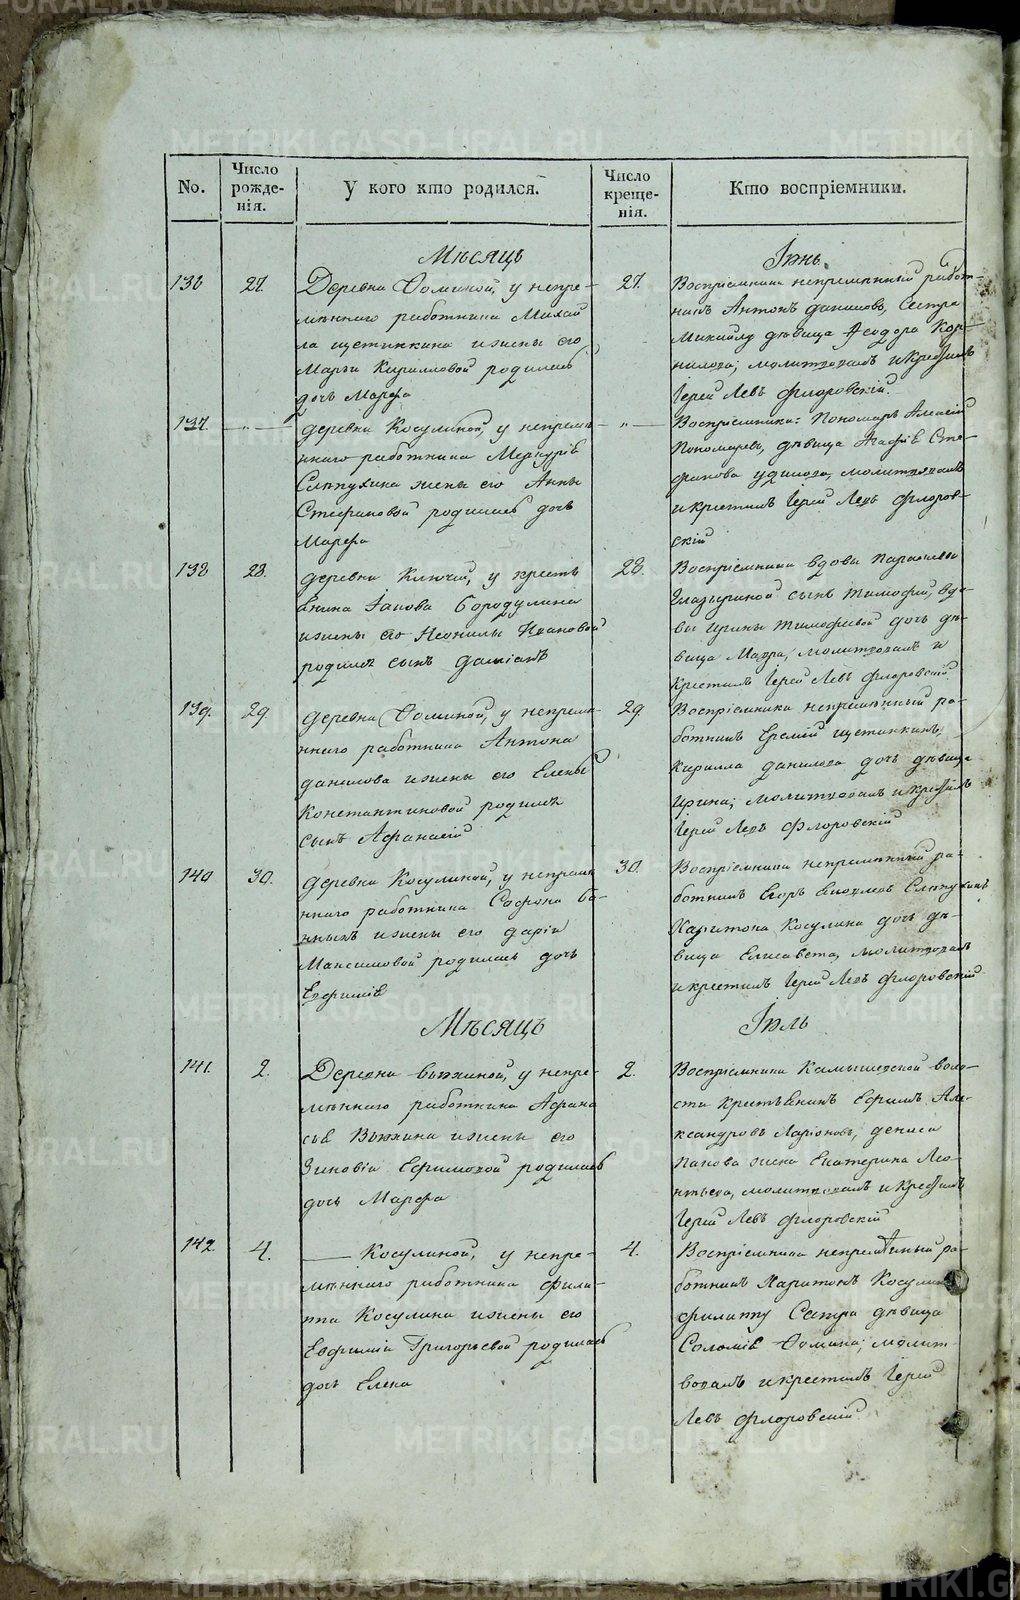 METRIKI.GASO-URAL.RU
No.
Число
рожде-
нія.
У кого кто родился.
Число
креще-
нія.
Кто воспріемники.
Мѣсяцъ
Іюнь.
136
27.
Деревни Ѳоминой, у непре-
мѣннаго работника Михаи
ла Щетинкина и жены его
Марьи Кирилловой родилась
дочь Марѳа
27.
Воспріемники непремѣнный работ-
никъ Антонъ Даниловъ, Сестра
Михаилу дѣвица Ѳеодора Кор-
нилова; молитвовалъ и крестилъ
Іерей Левъ Флоровскій.
137.
— " —
деревни Косулиной, у непремѣ
ннаго работника Меркурія
Слѣпухина жены его Анны
Стефановой родилась дочь
Марѳа
— " —
Воспріемники: Пономарь Алексій
Пономаревъ, дѣвица Агафія Сте-
фанова Удилова, молитвовалъ
и крестилъ Іерей Левъ Флоров-
скій
138
28.
деревни Ключей, у кресть
янина Іакова Бородулина
и жены его Неонилы Ивановой
родился сынъ Даміанъ
28.
Воспріемники вдовы Парасковьи
Глазыриной сынъ Тимофей, вдо-
вы Ирины Тимофеевой дочь дѣ-
вица Мавра, молитвовалъ и
крестилъ Іерей Левъ Флоровскій
139.
29.
деревни Ѳоминой, у непремѣ-
ннаго работника Антона
Данилова и жены его Елены
Константиновой родился
сынъ Афанасій
29.
Воспріемники непремѣнный ра-
ботникъ Еремій Щетинкинъ;
Кирилла Данилова дочь дѣвица
Ирина; молитвовалъ и крестилъ
Іерей Левъ Флоровскій
140
30.
деревни Косулиной, у непремѣ
ннаго работника Софона Ба-
нныхъ и жены его Даріи
Максимовой родилась дочь
Евфимія
30.
Воспріемники непремѣнный ра-
ботникъ Егоръ Слѣпухинъ
Харитона Косулина дочь дѣ-
вица Елисавета, молитвовалъ
и крестилъ Іерей Левъ Флоровскій
Мѣсяцъ
Іюль
141.
2.
Деревни Вьюхиной, у непре-
мѣннаго работника Афана
сья Вьюхина и жены его
Зиновіи Ефимовой родилась
дочь Марѳа
2.
Воспріемники Камышевской воло-
сти крестьянинъ Ефимъ Але-
ксандровъ Ларіоновъ, Дениса
Попова жена Екатерина Лео-
нтьева, молитвовалъ и крестилъ
Іерей Левъ Флоровскій
142.
4.
— Косулиной, у непре-
мѣннаго работника Фили-
ппа Косулина и жены его
Евфиміи Григорьевой родилась
дочь Елена
4.
Воспріемники непремѣнный ра-
ботникъ Харитонъ Косулинъ
Филиппу Сестра дѣвица
Соломія Ѳомина; молит-
вовалъ и крестилъ Іерей
Левъ Флоровскій